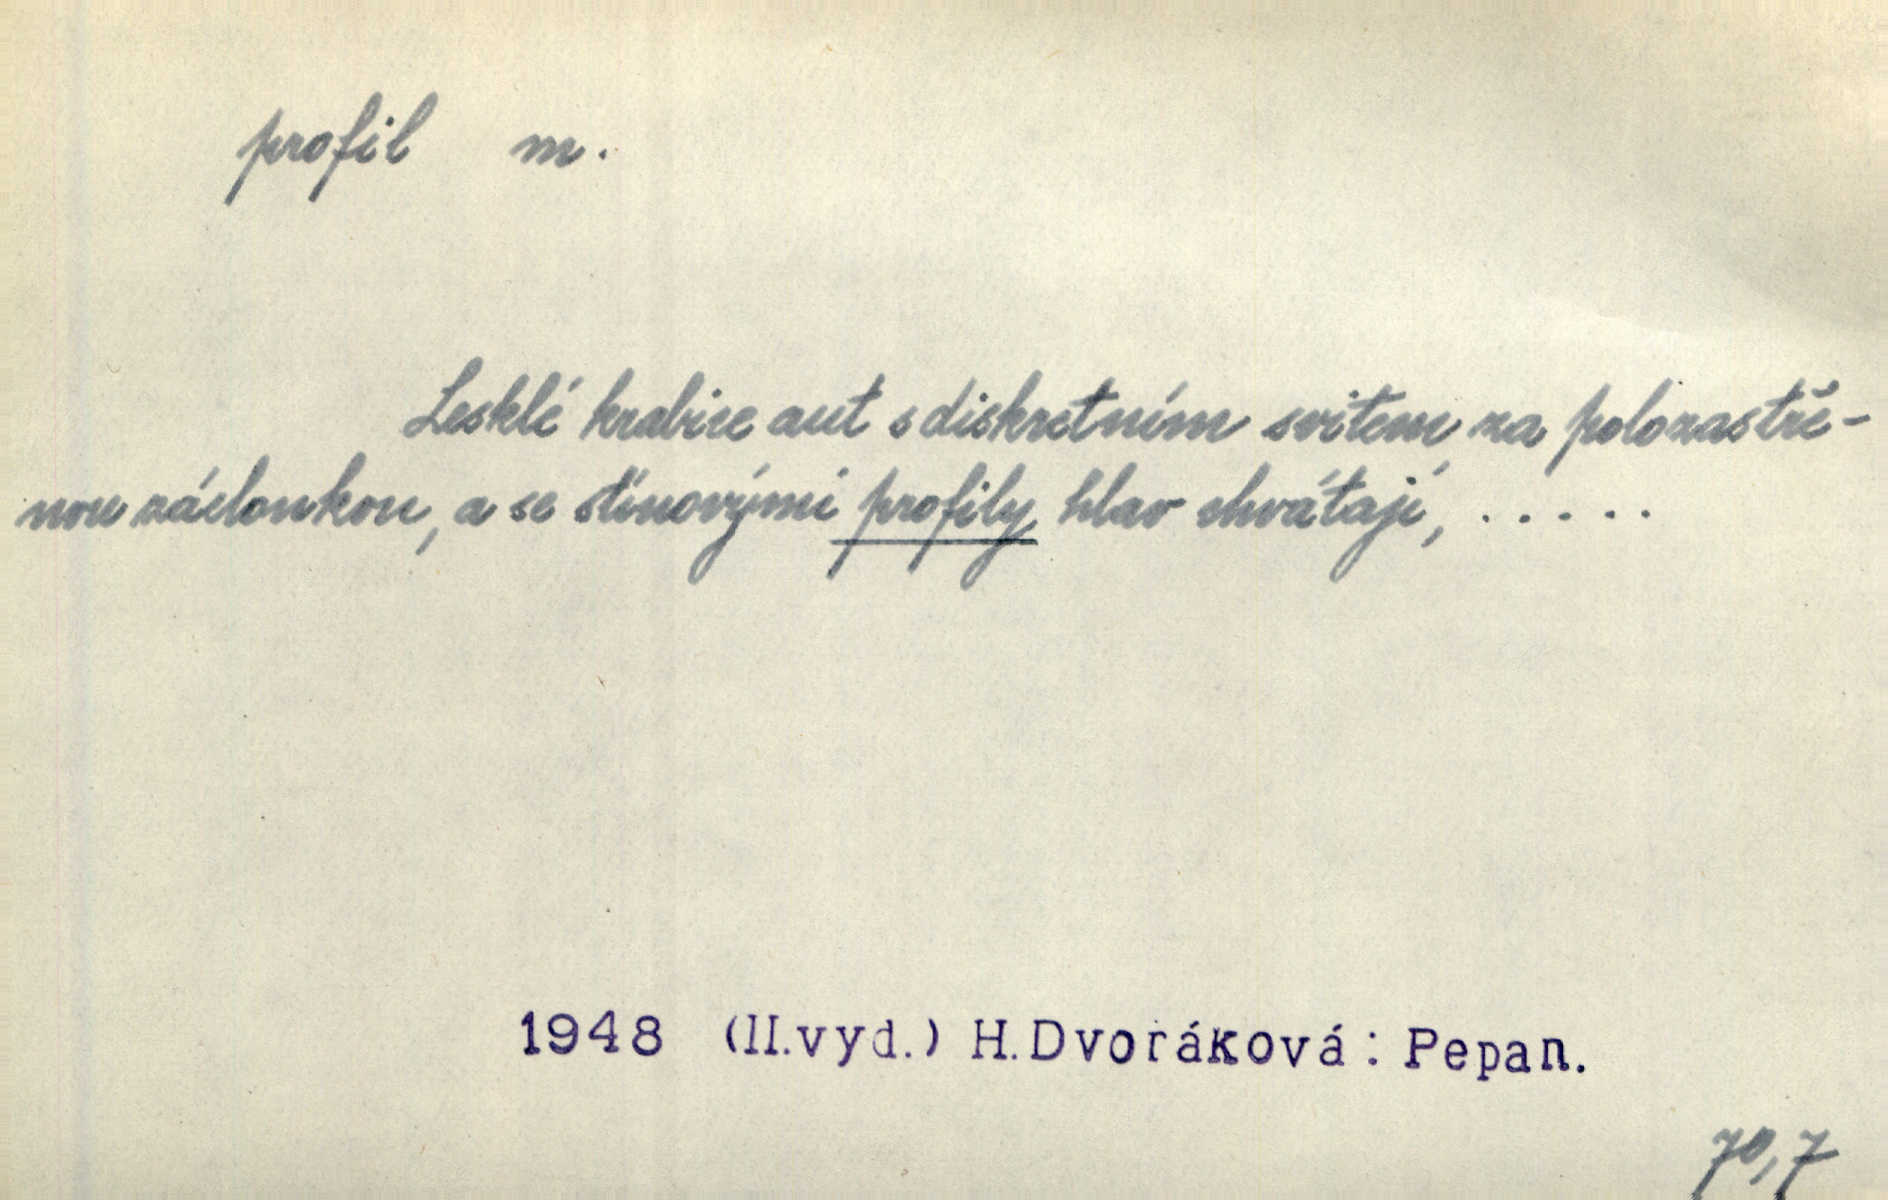 profil m.
Lesklé krabice aut s diskretním svitem za polozastře-
nou záclonkou, a se stínovými profily hlav chvátají, .....
1948 (II.vyd.) H.Dvořáková: Pepan.
70,7